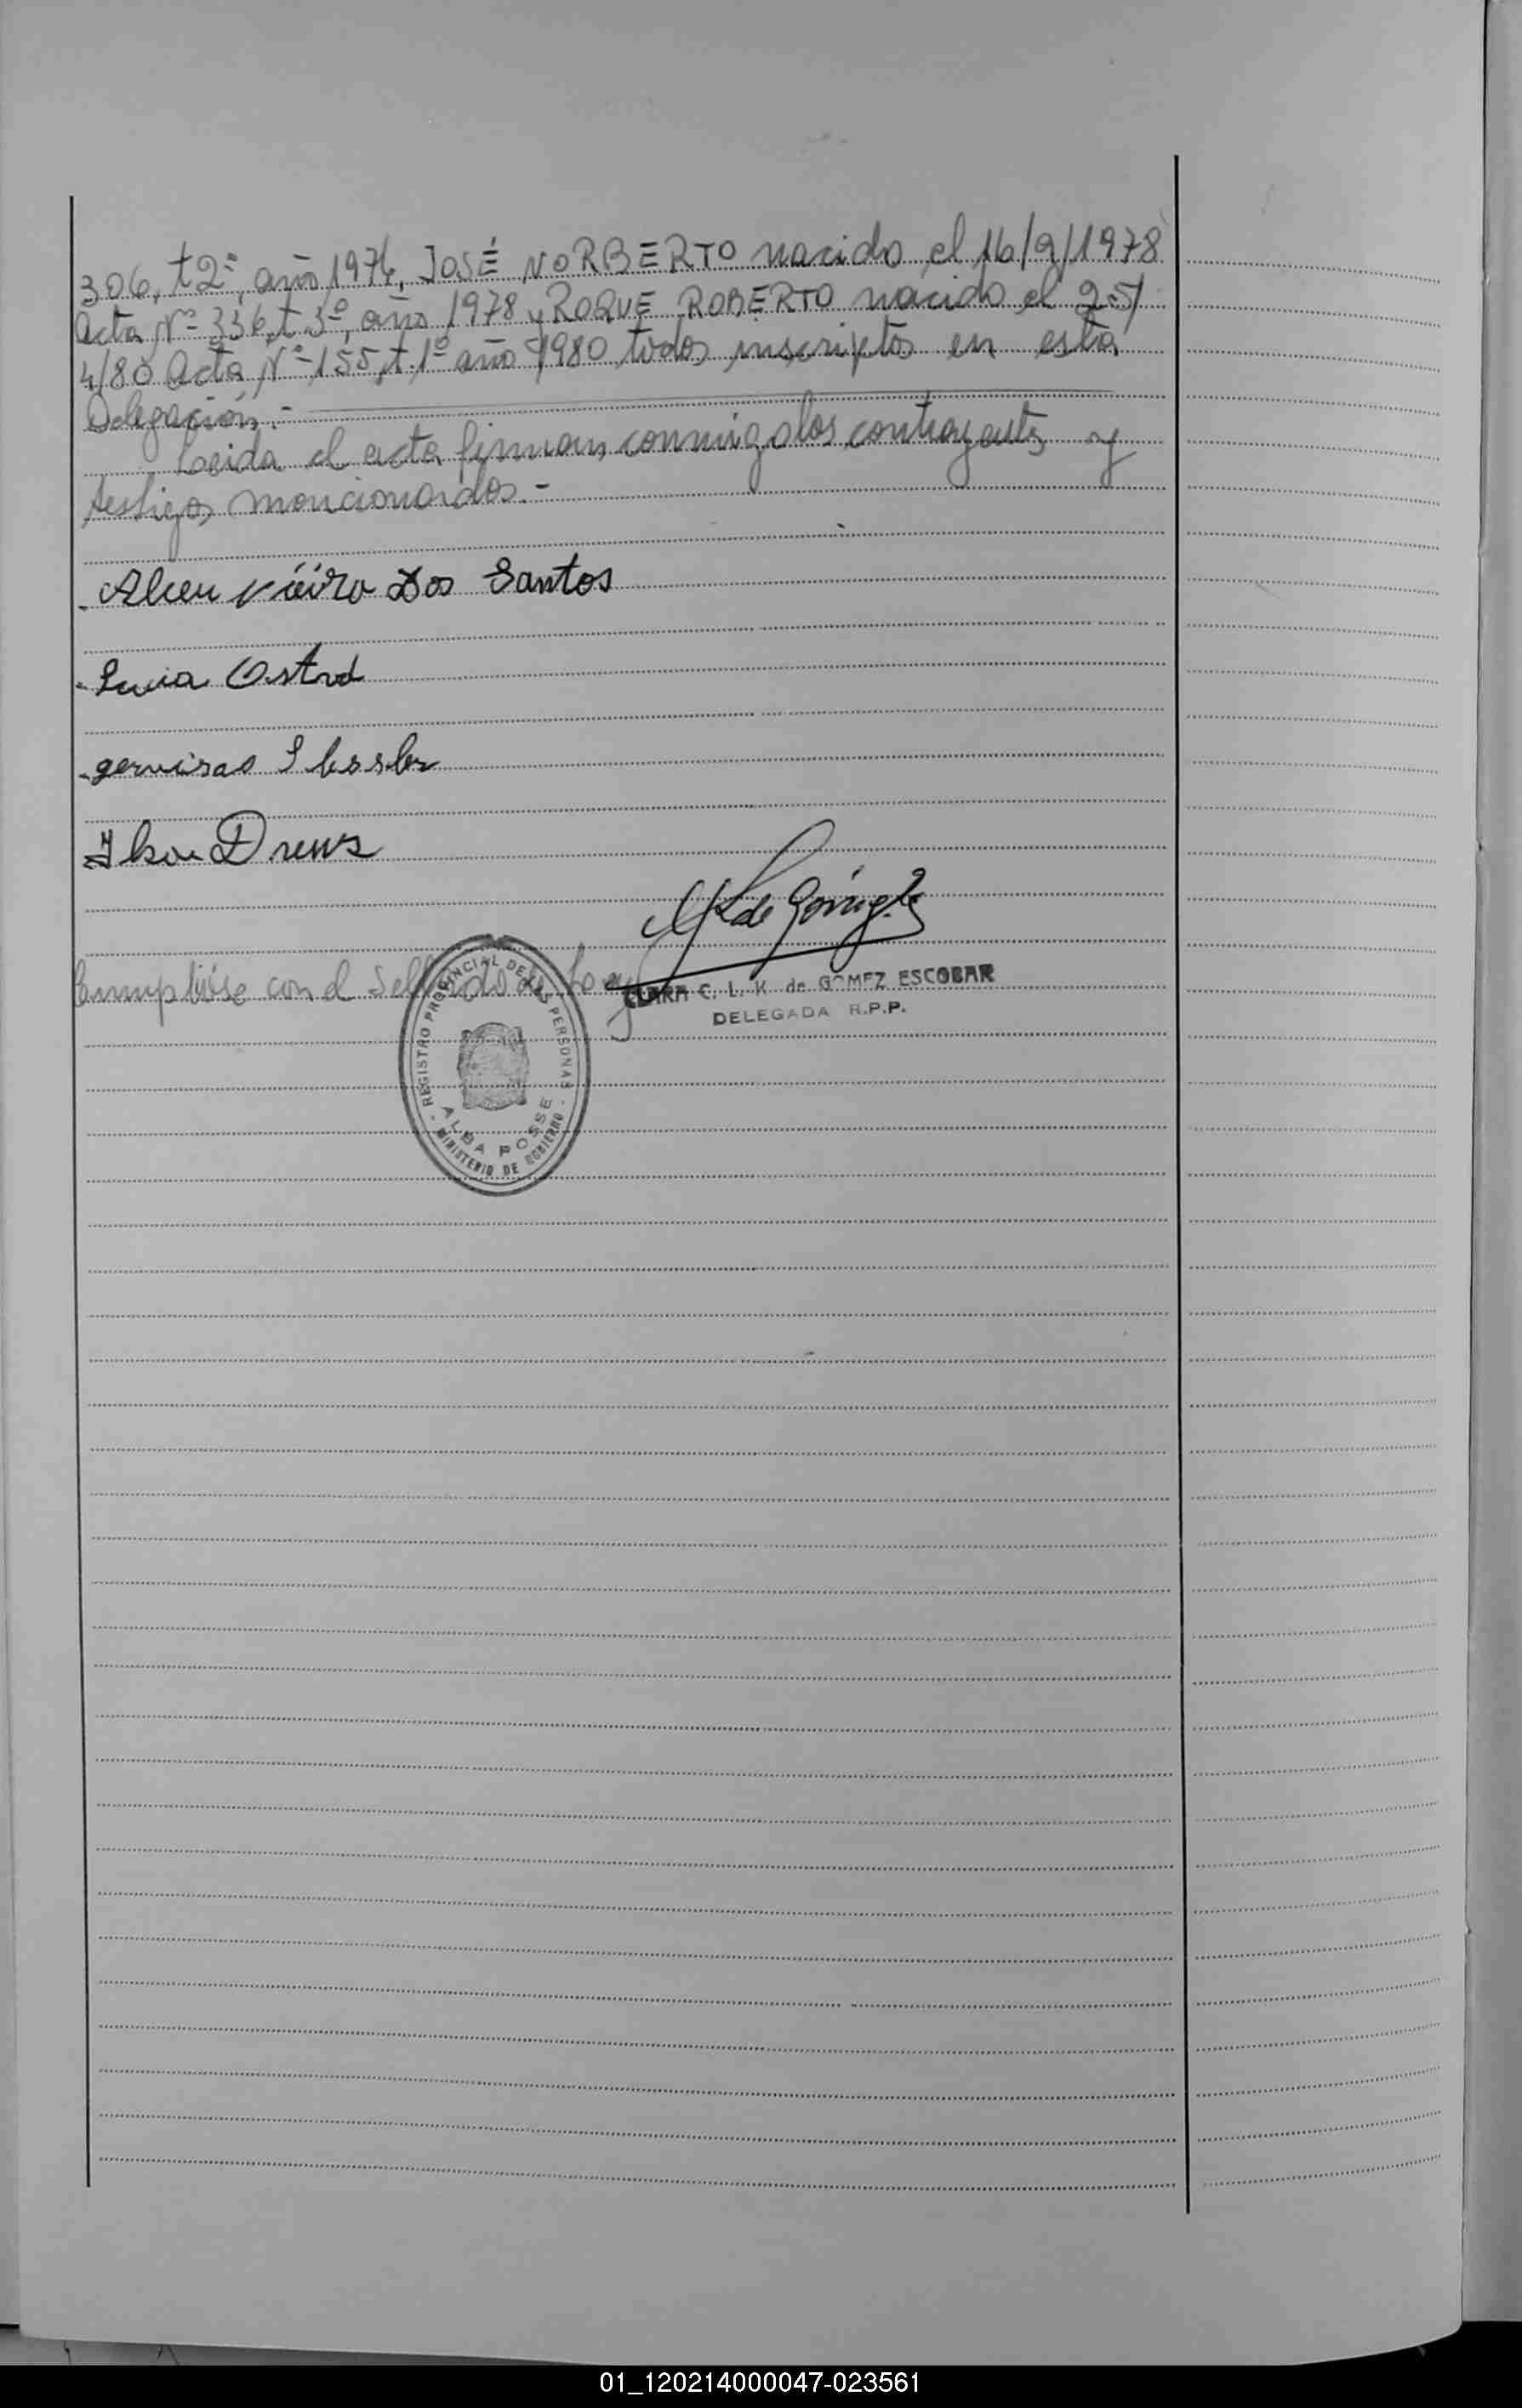 306, t 2º, año 1974, JOSÉ NORBERTO nacido el 16/9/1978
Acta Nº 336, t 3º, año 1978 y ROQUE ROBERTO nacido el 25/
4/80 Acta Nº 155, t. 1º año 1980 todos inscriptos en esta
Delegación.-
Leida el acta firman conmigo los contrayentes y
testigos mencionados.-
Alceu Vieira Dos Santos
Lucia
Drews
Cumplióse con el Sellado de Ley
CLARA C. L. K. de GOMEZ ESCOBAR
DELEGADA R.P.P.
REGISTRO PROVINCIAL DE LAS PERSONAS
ALBA POSSE
MINISTERIO DE GOBIERNO
01_120214000047-023561